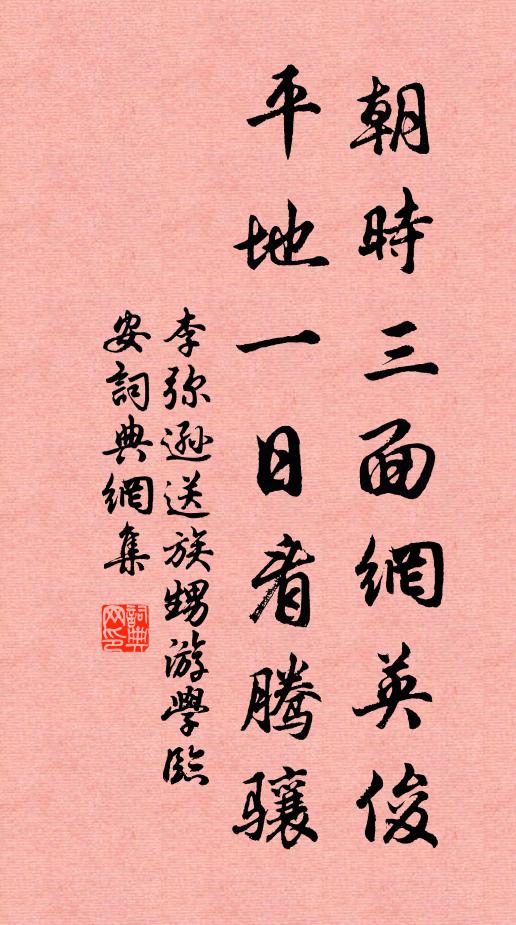 朝時三面網英俊
平地一日看騰驤
李弥遜送族甥游學臨
安詞典網集
詞典网印